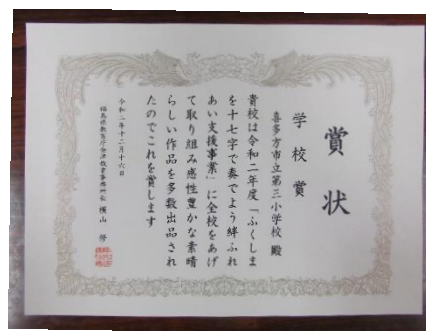 賞状
学校賞
喜多方市立第三小学校殿
貴校は令和二年度「ふくしま
を十七字で奏でよう絆ふれ
あい支援事業」に全校をあげ
て取り組み感性豊かな素晴
らしい作品を多数出品され
たのでこれを賞します
令和二年十二月十六日
福島県教育庁会津教育事務所長 横山 修